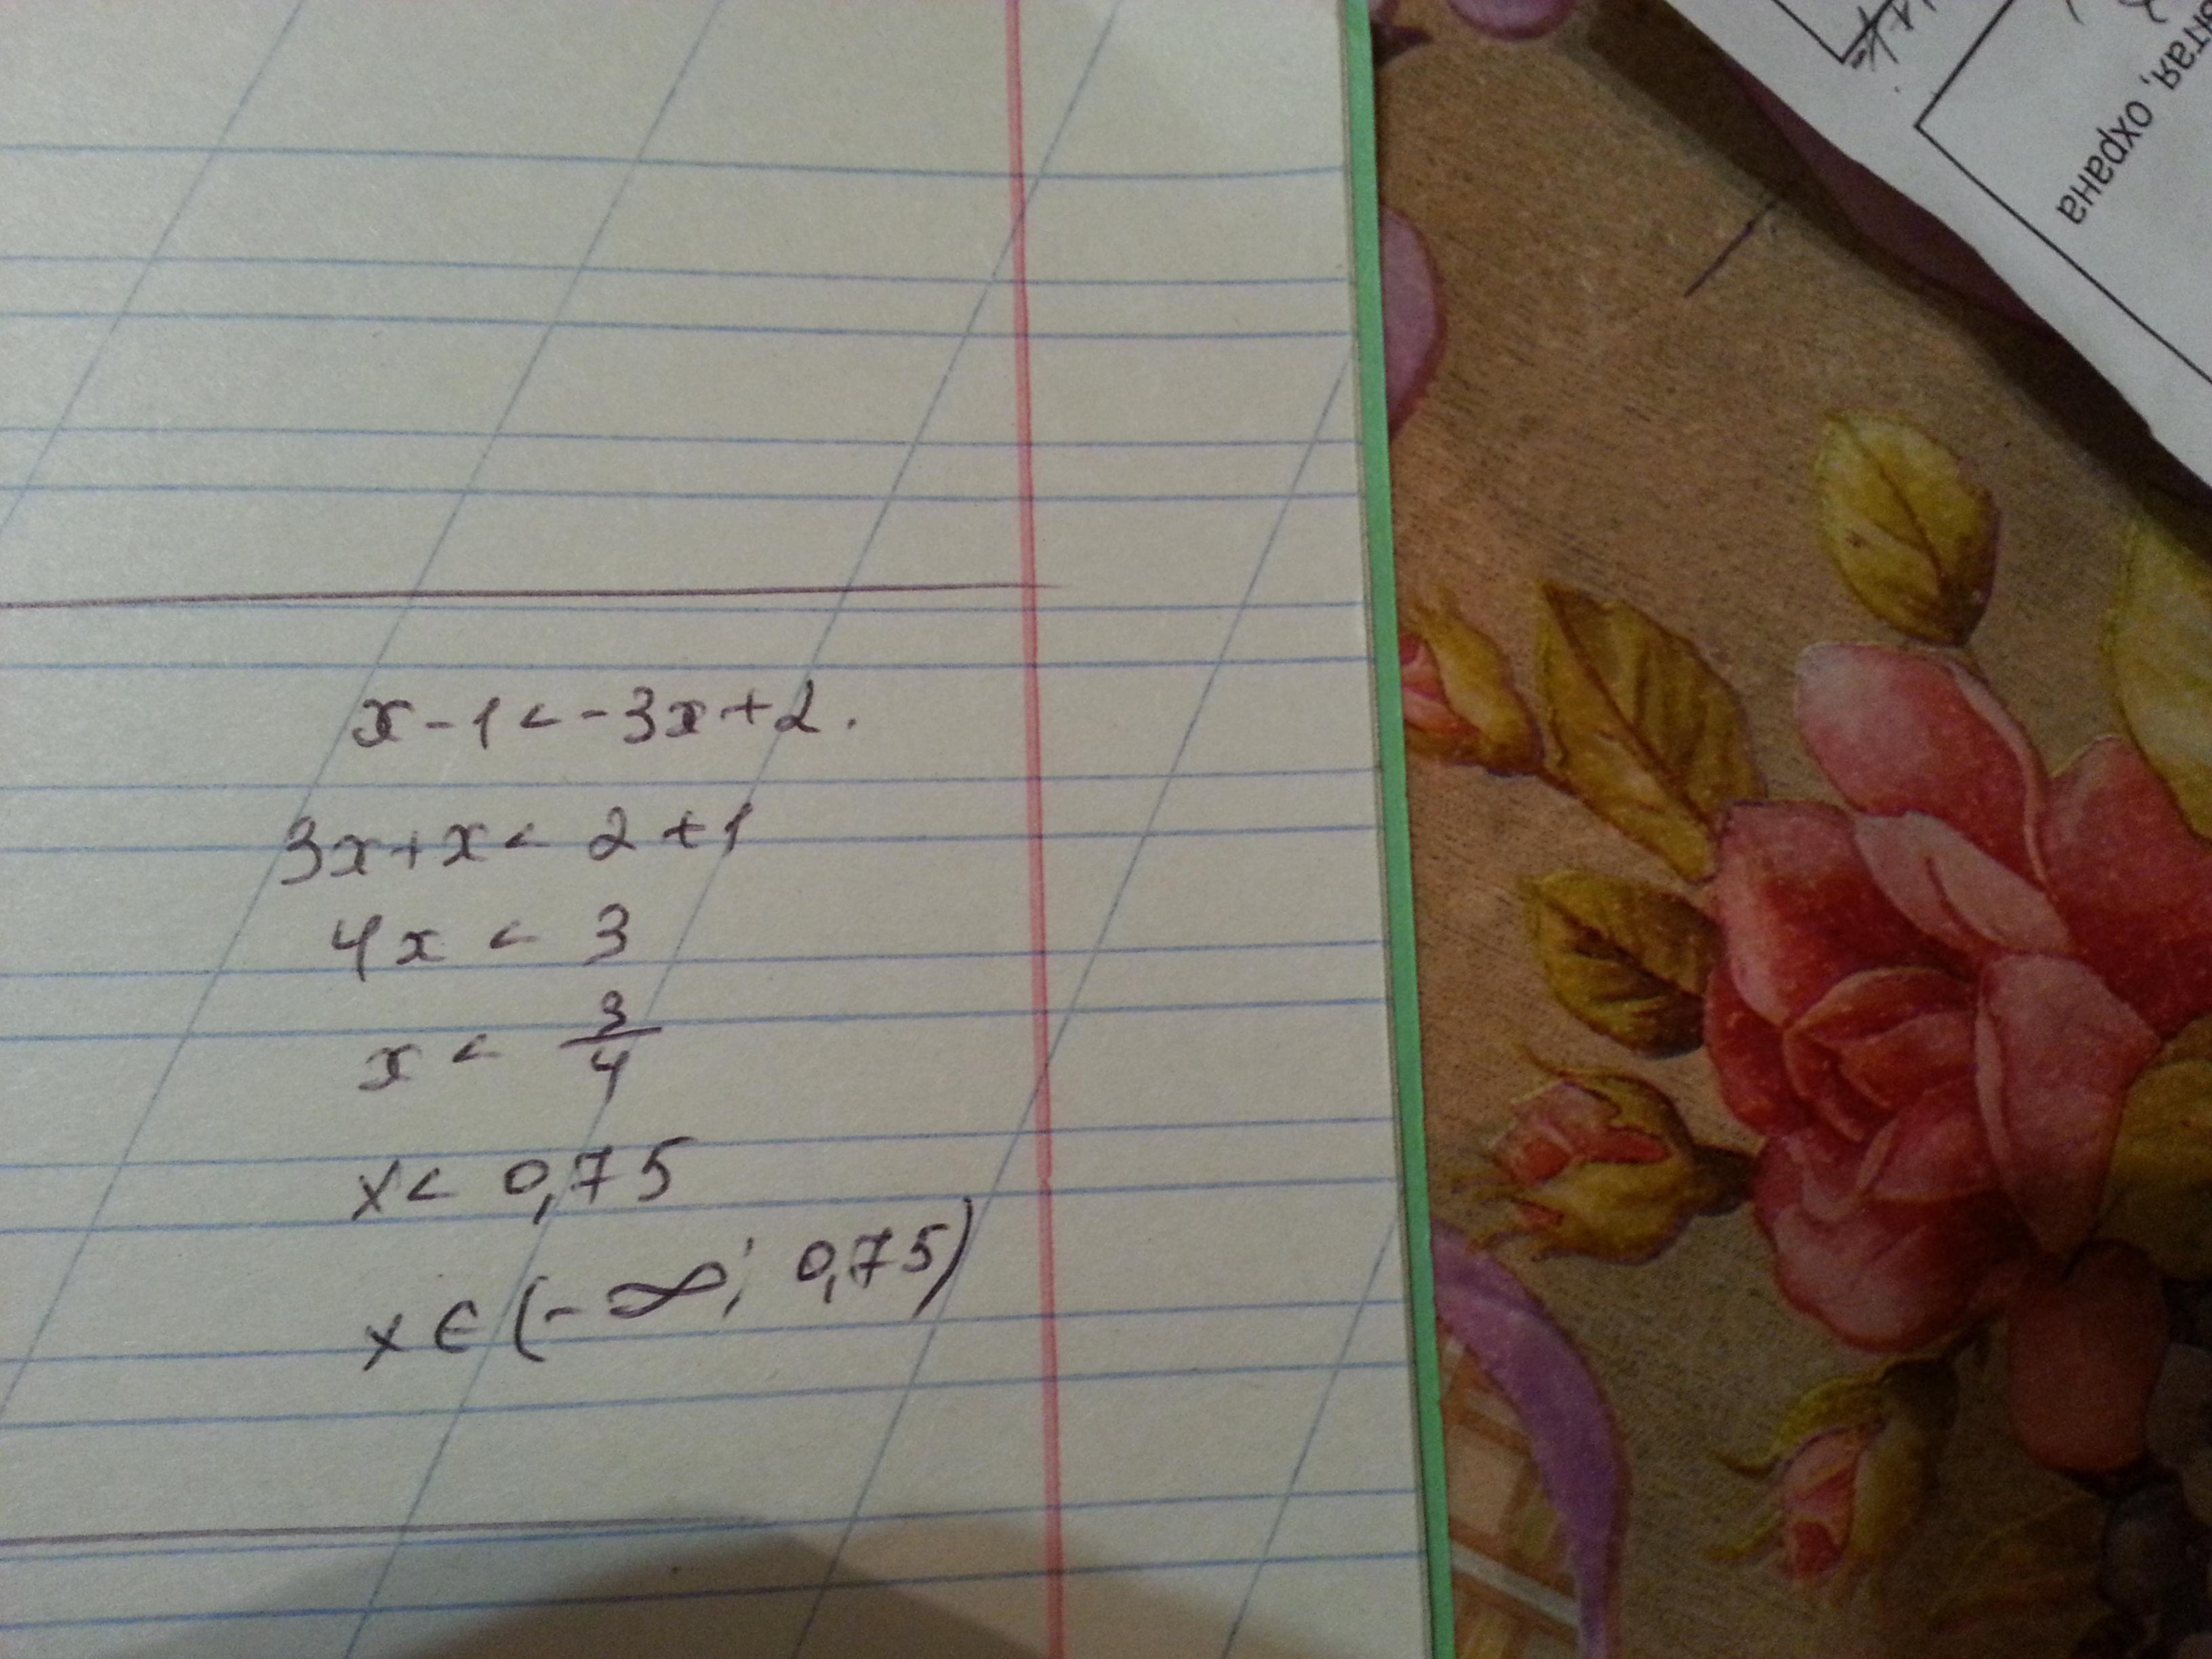 x - 1 < - 3x + 2.
3x + x < 2 + 1
4x < 3
x < 3/4
x < 0,75
x ∈ (- ∞; 0,75)
охрана